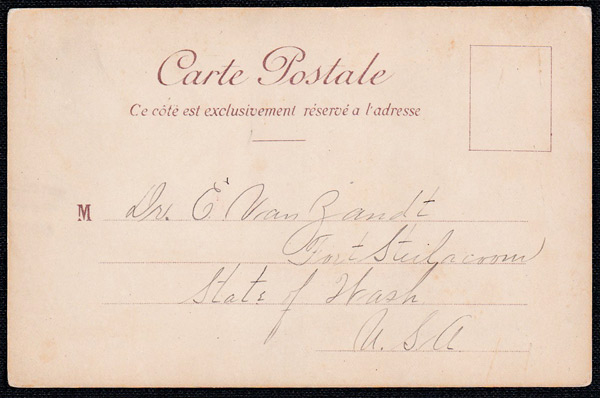 Carte Postale
Ce côté est exclusivement réservé a l'adresse
M Dr. E Van Zandt
Fort Steilacoom
State of Wash
U.S.A.